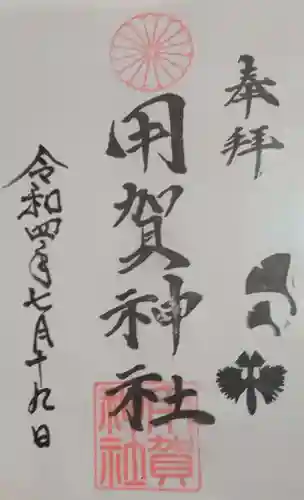 奉拝
用賀神社
令和四年七月十九日
用賀神社